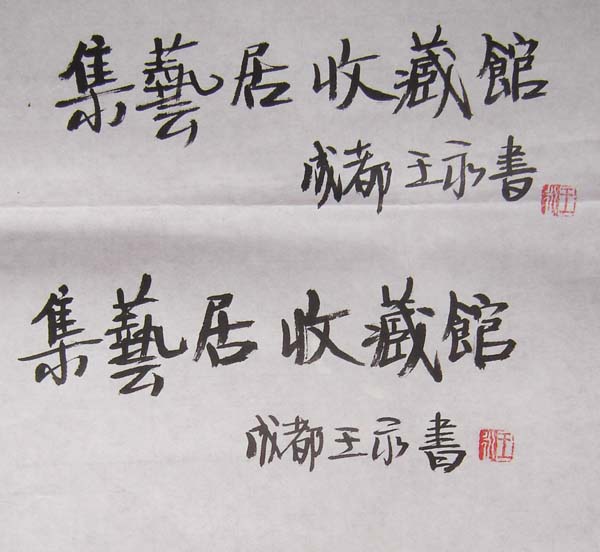 集藝居收藏館
成都王永書
集藝居收藏館
成都王永書